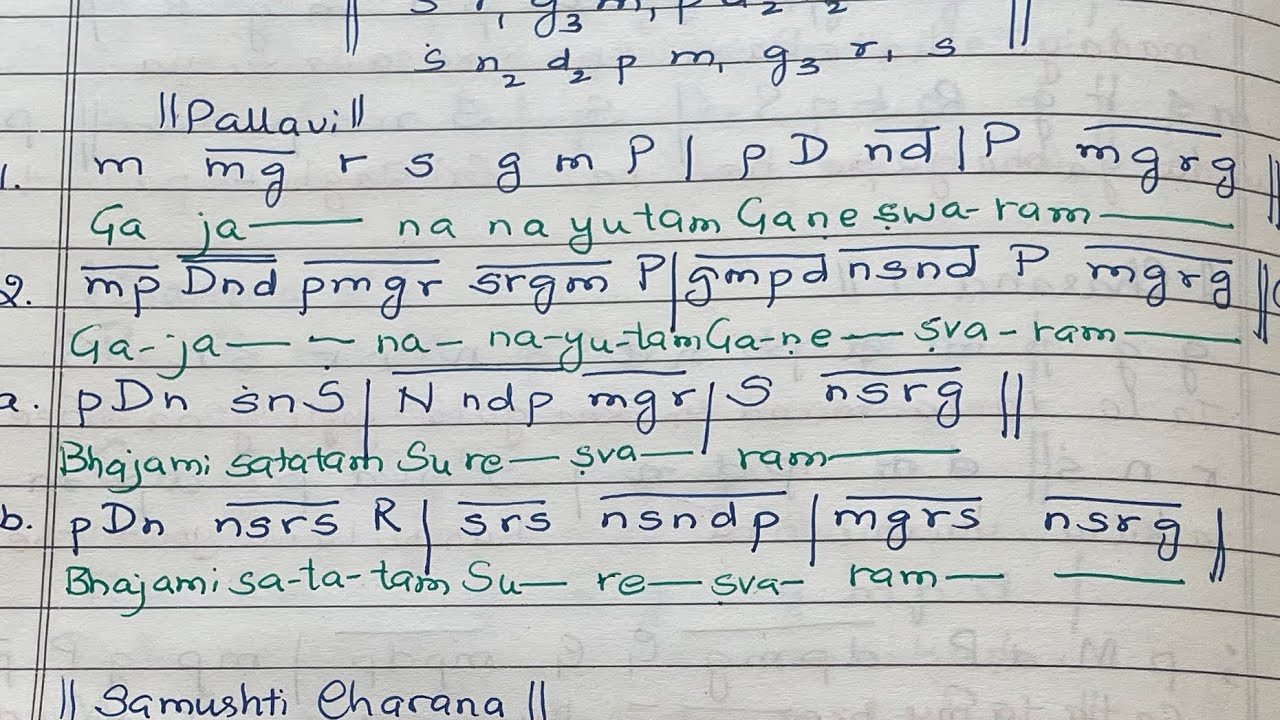 s r₁ g₃ m₁ p d₂ n₂ ||
ṡ n₂ d₂ p m₁ g₃ r₁ s
||Pallavi||
1. m mg r s g m P | p D nd | P mgrg ||
Ga ja—— na na yutam Gaṇe ṣwa-ram——
2. mp Dnd pmgr srgm P | gmpd nsnd P mgrg ||
Ga-ja—— na- na-yu-tam Ga-ṇe— ṣva-ram——
a. pDn ṡnS | N ndp mgr | S nsrg ||
Bhajami satatam Su re— ṣva— ram——
b. pDn nsrs R | srs nsndp | mgrs nsrg ||
Bhajami sa-ta-tam Su— re— sva- ram— ——
|| Samushti Charana ||